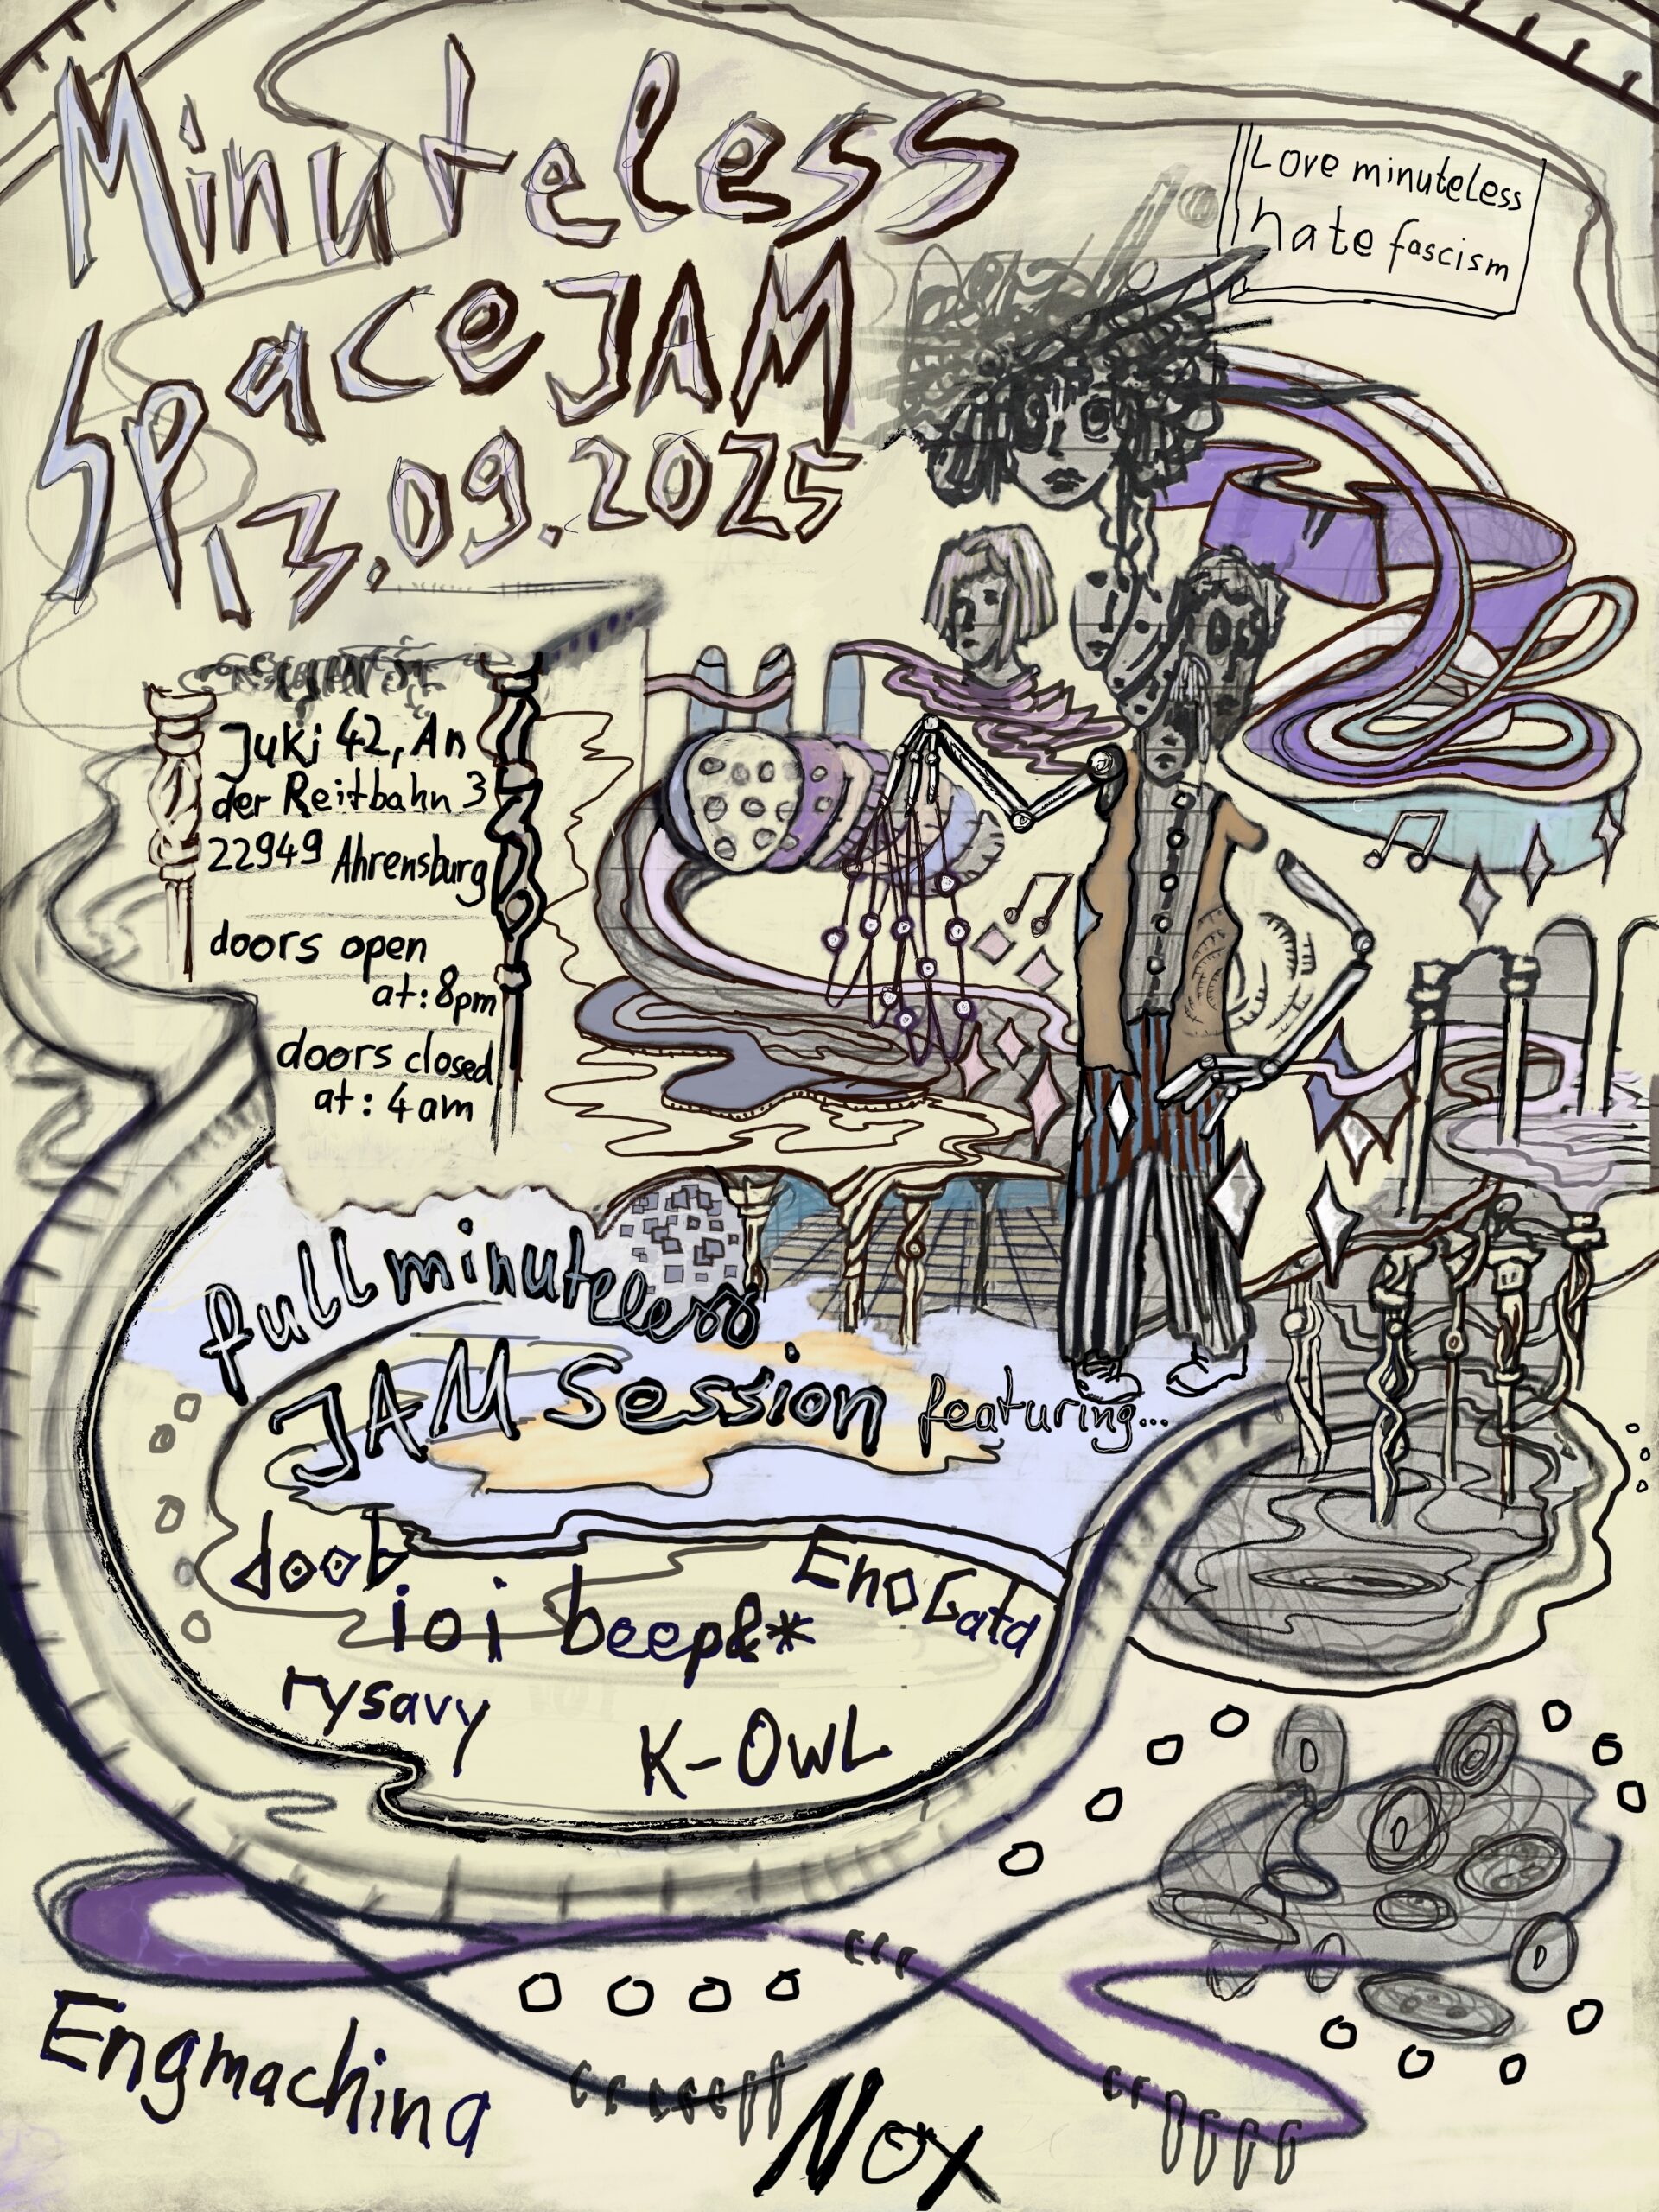 Minuteless
SpaceJAM
13.09.2025
Love minuteless
hate fascism
Juki 42, An
der Reitbahn 3
22949 Ahrensburg
doors open
at: 8pm
doors closed
at: 4am
full minuteless
JAM Session featuring...
doob
EnoGata
ioi beep&*
rysavy
K-OwL
Engmachina
Nox